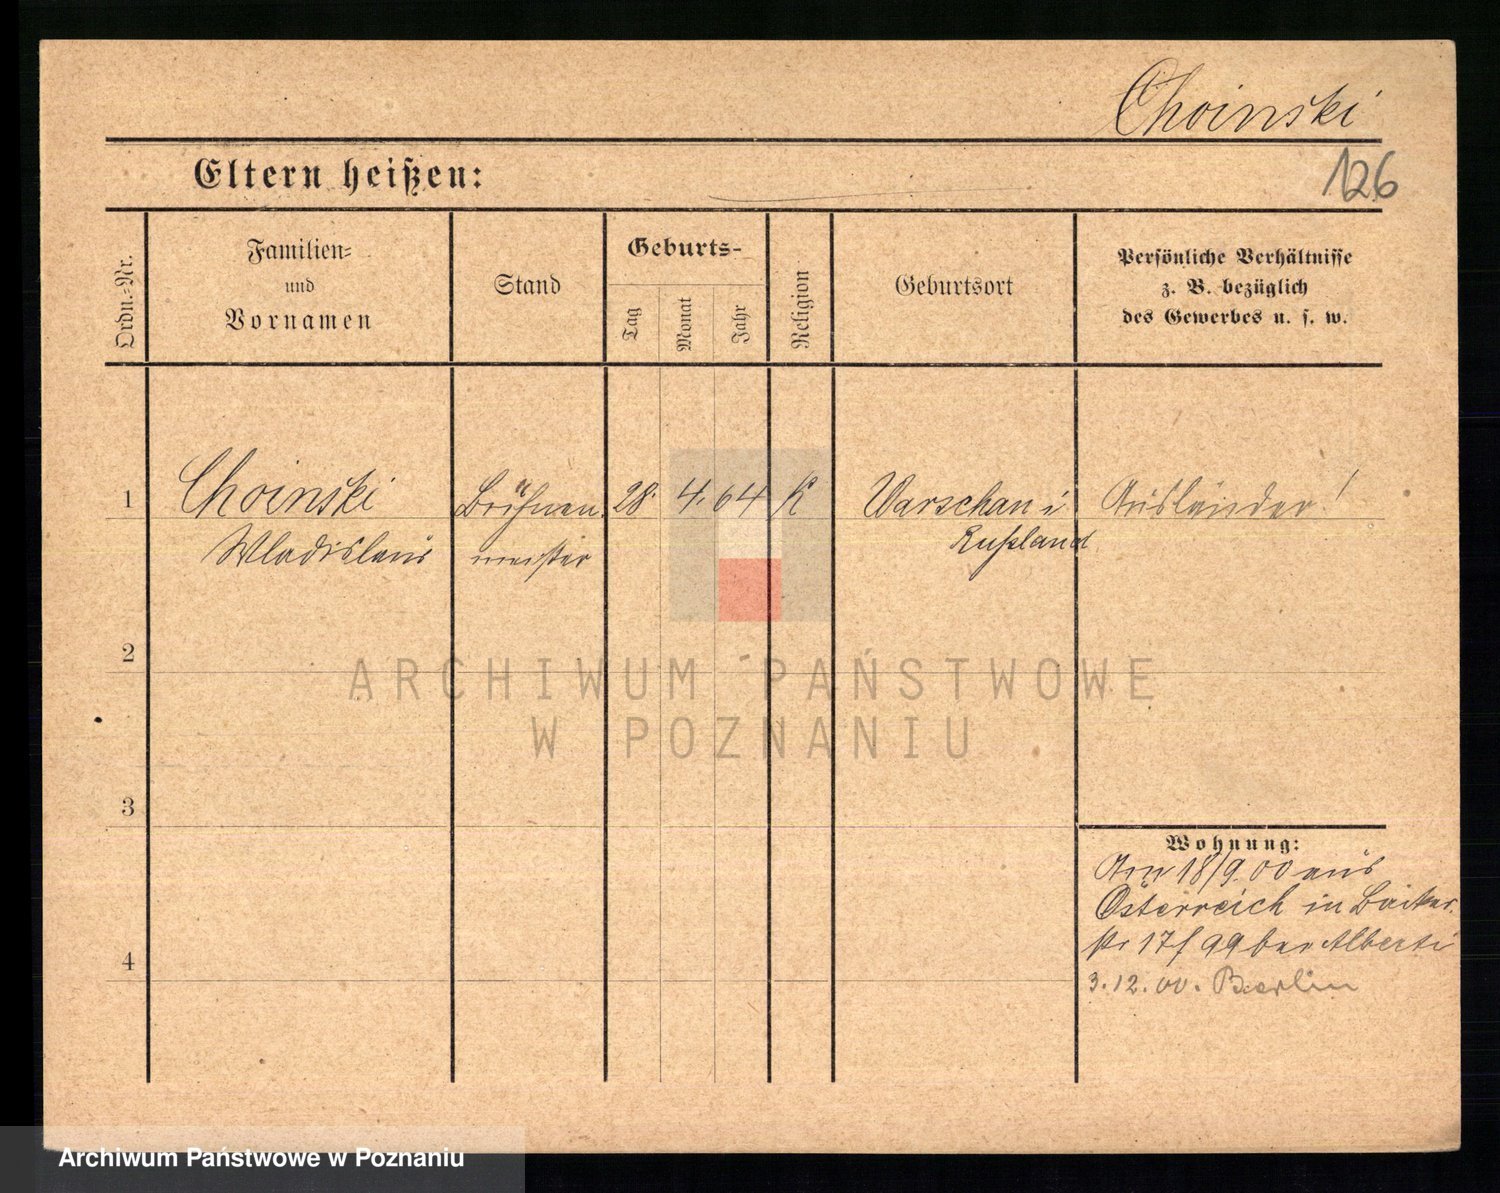 Choinski
126
Eltern heißen:
Ordn.-Nr.
Familien-
und
Vornamen
Stand
Geburts-
Tag
Monat
Jahr
Religion
Geburtsort
Persönliche Verhältnisse
z. B. bezüglich
des Gewerbes u. s. w.
1
Choinski
Wladislaus
Bühnen
meister
28. 4. 64
K
Warschau i
Rußland
Ausländer!
2
3
4
Wohnung:
Am 18/9 00 aus
Österreich in Bäcker
str 17 99 bei Alberti
3.12.00. Berlin
ARCHIWUM PAŃSTWOWE
W POZNANIU
Archiwum Państwowe w Poznaniu